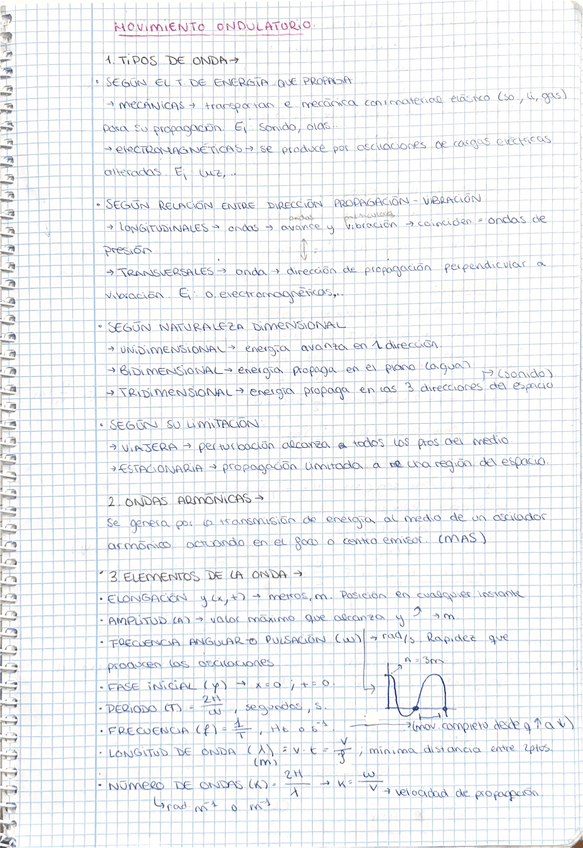 MOVIMIENTO ONDULATORIO
1. TIPOS DE ONDA→
· SEGÚN EL T DE ENERGÍA QUE PROPAGA
→ MECÁNICAS → transportan e mecánica con material elástico (so, li, gas)
para su propagación. Ej sonido, olas...
→ ELECTROMAGNÉTICAS → se produce por oscilaciones de cargas eléctricas
alteradas. Ej luz,..
· SEGÚN RELACIÓN ENTRE DIRECCIÓN PROPAGACIÓN - VIBRACIÓN
ondas partículas
→ LONGITUDINALES → ondas → avance y vibración → coinciden = ondas de
presión
→ TRANSVERSALES → onda → dirección de propagación perpendicular a
vibración Ej: o. electromagnéticas,..
· SEGÚN NATURALEZA DIMENSIONAL
→ UNIDIMENSIONAL → energía avanza en 1 dirección
→ BIDIMENSIONAL → energía propaga en el plano (agua)
→ (sonido)
→ TRIDIMENSIONAL → energía propaga en las 3 direcciones del espacio
· SEGÚN SU LIMITACIÓN
→ VIAJERA → perturbación alcanza a todos los ptos del medio
→ ESTACIONARIA → propagación limitada a una región del espacio.
2. ONDAS ARMÓNICAS →
Se genera por la transmisión de energía al medio de un oscilador
armónico actuando en el foco o centro emisor. (MAS)
3. ELEMENTOS DE LA ONDA →
· ELONGACIÓN y (x,t) → metros, m. Posición en cualquier instante
· AMPLITUD (A) → valor máximo que alcanza y → m
· FRECUENCIA ANGULAR O PULSACIÓN (ω) → rad/s Rapidez que
producen las oscilaciones
A = 3m
· FASE INICIAL (φ) → x=0 ; t=0.
· PERIODO (T) = 2π/ω, segundos, s.
· FRECUENCIA (f) = 1/T, Hz o s⁻¹
(mov. completo desde q ↑ a ↓)
· LONGITUD DE ONDA (λ) = v · t = v/f, mínima distancia entre 2 ptos
(m)
· NÚMERO DE ONDAS (K) = 2π/λ → K = ω/v → velocidad de propagación
↳ rad m⁻¹ o m⁻¹